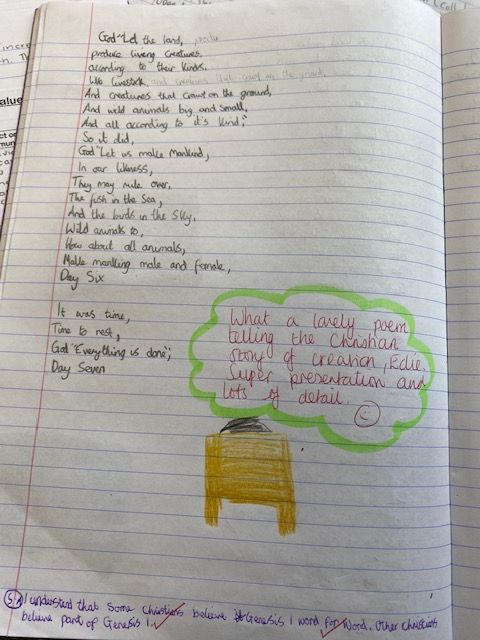 God "Let the land,
produce living creatures.
according to their kinds.
Like livestock,
And creatures that crawl on the ground,
And wild animals big and small,
And all according to it's kind;"
So it did,
God "Let us make Mankind,
In our likeness,
They may rule over,
The fish in the Sea,
And the birds in the Sky,
Wild animals to,
How about all animals,
Make mankling male and female,
Day Six
It was time,
Time to rest,
God "Everything is done";
Day Seven
What a lovely poem
telling the Christian
story of creation, Edie.
Super presentation and
lots of detail.
I understand that Some Christians believe Genesis 1 word for word. Other Christians
believe part of Genesis 1.